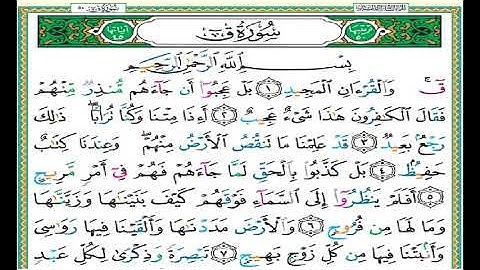 سُورَةُ قٓ
بِسْمِ ٱللَّهِ ٱلرَّحْمَٰنِ ٱلرَّحِيمِ
قٓ ۚ وَٱلْقُرْءَانِ ٱلْمَجِيدِ ١ بَلْ عَجِبُوٓا۟ أَن جَآءَهُم مُّنذِرٌ مِّنْهُمْ
فَقَالَ ٱلْكَٰفِرُونَ هَٰذَا شَىْءٌ عَجِيبٌ ٢ أَءِذَا مِتْنَا وَكُنَّا تُرَابًا ۖ ذَٰلِكَ
رَجْعٌۢ بَعِيدٌ ٣ قَدْ عَلِمْنَا مَا تَنقُصُ ٱلْأَرْضُ مِنْهُمْ ۖ وَعِندَنَا كِتَٰبٌ
حَفِيظٌۢ ٤ بَلْ كَذَّبُوا۟ بِٱلْحَقِّ لَمَّا جَآءَهُمْ فَهُمْ فِىٓ أَمْرٍ مَّرِيجٍ
٥ أَفَلَمْ يَنظُرُوٓا۟ إِلَى ٱلسَّمَآءِ فَوْقَهُمْ كَيْفَ بَنَيْنَٰهَا وَزَيَّنَّٰهَا
وَمَا لَهَا مِن فُرُوجٍ ٦ وَٱلْأَرْضَ مَدَدْنَٰهَا وَأَلْقَيْنَا فِيهَا رَوَٰسِىَ
وَأَنۢبَتْنَا فِيهَا مِن كُلِّ زَوْجٍۭ بَهِيجٍ ٧ تَبْصِرَةً وَذِكْرَىٰ لِكُلِّ عَبْدٍ